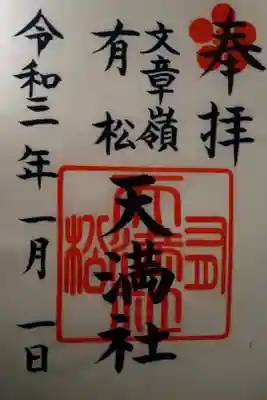 奉拝
文章嶺
有松
天満社
令和三年一月一日